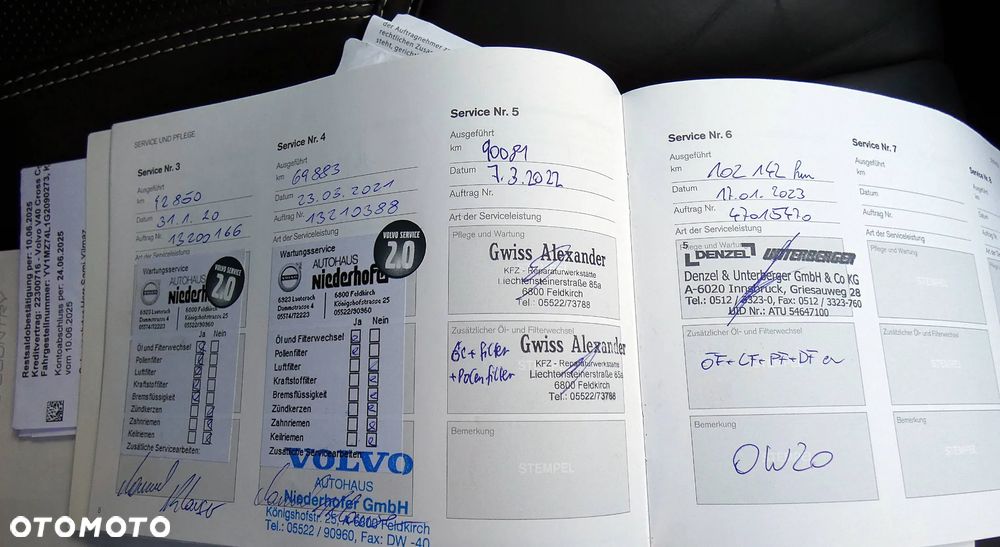 der Auftragnehmer
rechtlichen Zusä
steht, gerich
Restsaldobestätigung per: 10.06.2025
Kreditvertrag: 22300716 - Volvo V40 Cross C
Fahrgestellnummer: YV1MZ74L1G2090273, k
Kontoabschluss per: 24.06.2025
vom 10.06.2025
SERVICE UND PFLEGE
Service Nr. 3
Ausgeführt
km 42850
Datum 31.1.20
Auftrag Nr. 13200166
Art der Serviceleistung
Wartungsservice
VOLVO SERVICE
2.0
AUTOHAUS
Niederho
6923 Lauterach
Dammstrasse 4
05574/72223
6800 Feldkirch
Königshofstrasse 25
05522/90960
Ja Nein
Öl und Filterwechsel
Pollenfilter
Luftfilter
Kraftstoffilter
Bremsflüssigkeit
Zündkerzen
Zahnriemen
Keilriemen
Zusätliche Servicearbeiten
8
Service Nr. 4
Ausgeführt
km 69883
Datum 23.03.2021
Auftrag Nr. 13210388
Art der Serviceleistung
Wartungsservice
VOLVO SERVICE
2.0
AUTOHAUS
Niederhofe
6923 Lauterach
Dammstrasse 4
05574/72223
6800 Feldkirch
Königshofstrasse 25
05522/90960
Ja Nein
Öl und Filterwechsel
Pollenfilter
Luftfilter
Kraftstoffilter
Bremsflüssigkeit
Zündkerzen
Zahnriemen
Keilriemen
Zusätliche Servicearbeiten
VOLVO
AUTOHAUS
Niederhofer GmbH
Königshofstr. 25, A-6800 Feldkirch
Tel.: 05522 / 90960, Fax: DW -40
Service Nr. 5
Ausgeführt
km 90081
Datum 7.3.2022
Auftrag Nr.
Art der Serviceleistung
Pflege und Wartung
Gwiss Alexander
KFZ - Reparaturwerkstätte
Liechtensteinerstraße 85a
6800 Feldkirch
Tel.: 05522/73788
Zusätzlicher Öl- und Filterwechsel
Öl + Filter
+ Pollenfilter
Gwiss Alexander
KFZ - Reparaturwerkstätte
Liechtensteinerstraße 85a
6800 Feldkirch
Tel.: 05522/73788
Bemerkung
STEMPEL
Service Nr. 6
Ausgeführt
km 102 142 km
Datum 17.01.2023
Auftrag Nr. 47015470
Art der Serviceleistung
5
Pflege und Wartung
DENZEL UNTERBERGER
Denzel & Unterberger GmbH & Co KG
A-6020 Innsbruck, Griesauweg 28
Tel.: 0512 / 3323-0, Fax: 0512 / 3323-760
UID Nr.: ATU 54647100
Zusätzlicher Öl- und Filterwechsel
ÖF + LF + PF + DF er
Bemerkung
0W20
Service Nr. 7
Ausgeführt
km
Datum
Auftrag Nr.
Art der Serviceleistung
Pflege und Wartung
STEMPEL
Zusätzlicher Öl- und Filterwechsel
STEMPEL
Bemerkung
STEMPEL
Service Nr. 8
Ausgeführt
km
Datum
Auftrag Nr.
Art der Serv
Pflege und
Zusätzlich
Bemerk
OTOMOTO